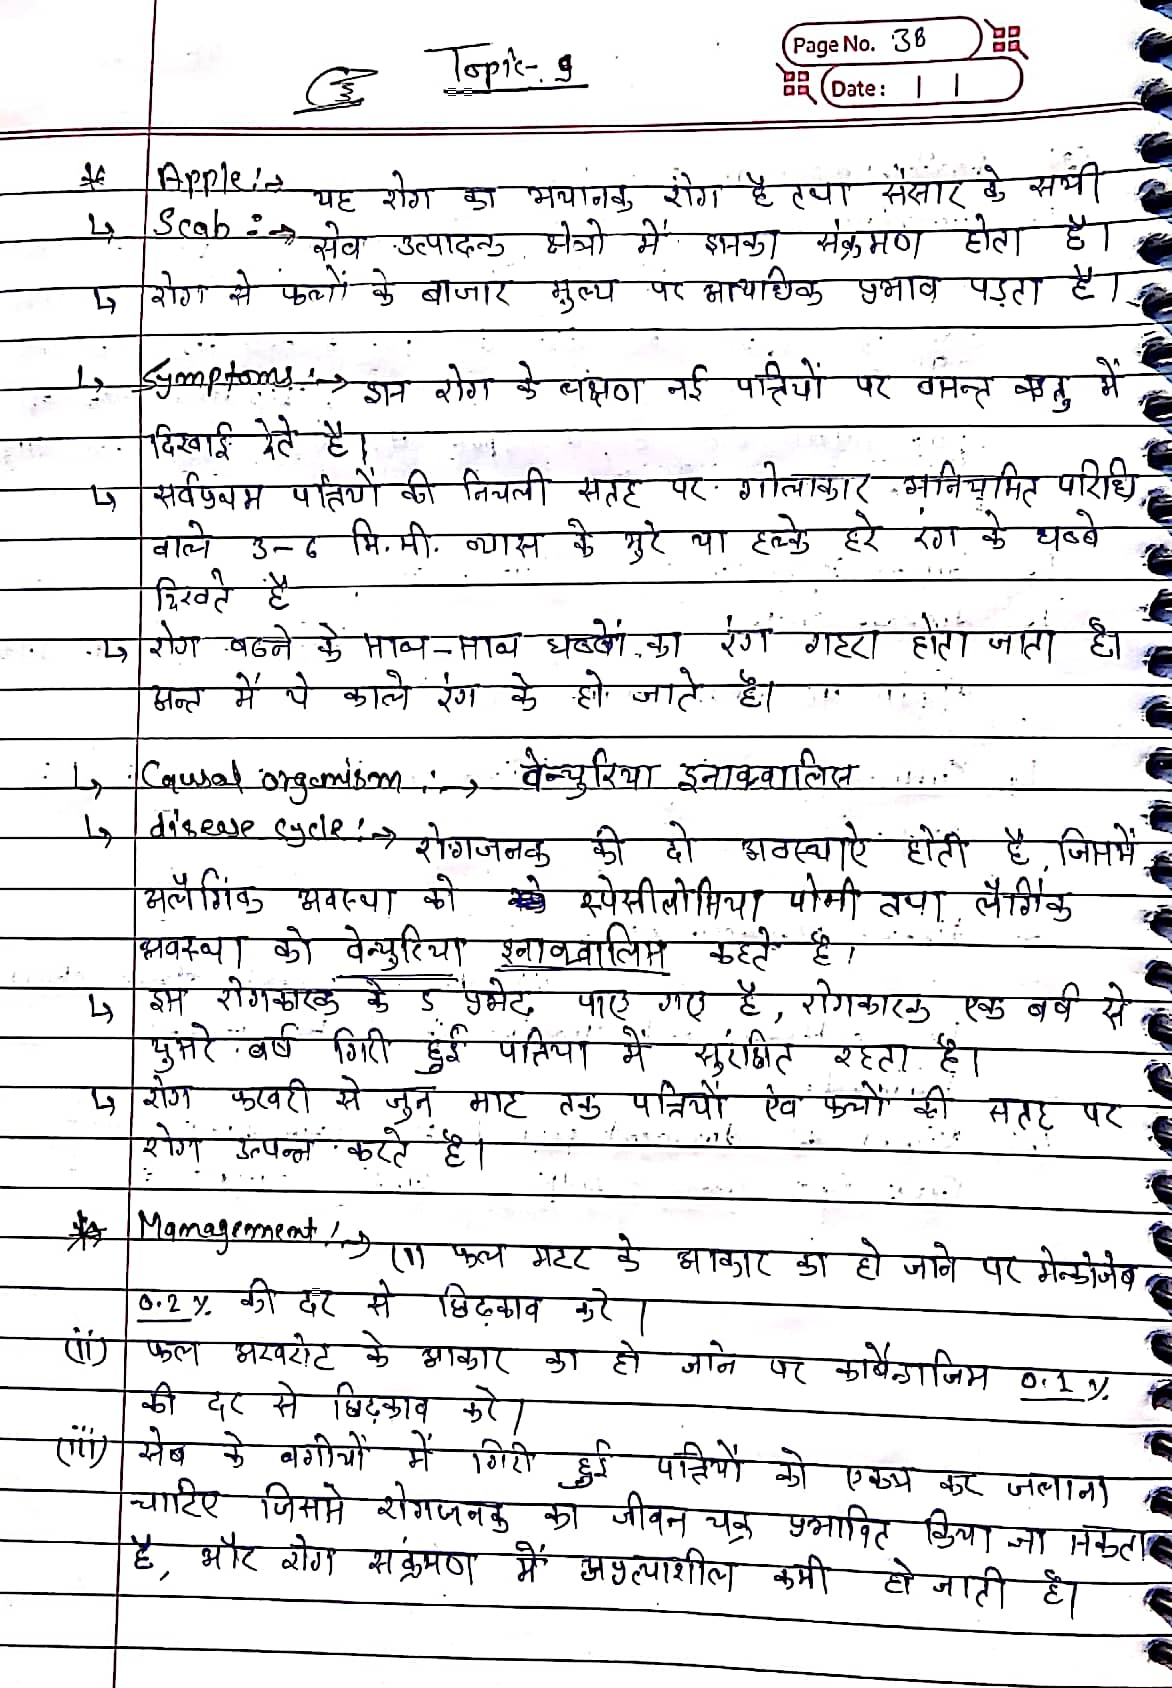 Topic- 9
Page No. 38
Date: | |
* Apple :→ यह रोग का भयानक रोग है तथा संसार के सभी
↳ Scab :→ सेब उत्पादक क्षेत्रो में इसका संक्रमण होता है।
↳ रोग से फलों के बाजार मुल्य पर अत्यधिक प्रभाव पड़ता है।
↳ Symptoms :→ इस रोग के लक्षण नई पत्तियों पर वसन्त ऋतु में
दिखाई देते है।
↳ सर्वप्रथम पत्तियों की निचली सतह पर गोलाकार अनियमित परिधि
वाले 3-6 मि.मी. व्यास के भुरे या हल्के हरे रंग के धब्बे
दिखते है
↳ रोग बढने के साथ-साथ धब्बों का रंग गहरा होता जाता है।
अन्त में ये काले रंग के हो जाते है।
↳ Causal organism :→ वेन्चुरिया इनाक्वालिस
↳ disease cycle :→ रोगजनक की दो अवस्थाऐ होती है, जिसमें
अलैगिंक अवस्था को स्पेसीलोमिया पोमी तथा लैगिंक
अवस्था को वेन्चुरिया इनाक्वालिस कहते है।
↳ इस रोगकारक के 5 प्रभेद पाए गए है, रोगकारक एक वर्ष से
दुसरे वर्ष गिरी हुई पतियों में सुरक्षित रहता है।
↳ रोग फरवरी से जुन माह तक पत्तियों ऐव फलों की सतह पर
रोग उत्पन्न करते है।
* Management :→ (i) फल मटर के आकार का हो जाने पर मेन्कोजेब
0.2% की दर से छिड़काव करे।
(ii) फल अखरोट के आकार का हो जाने पर कार्बेन्डाजिम 0.1%
की दर से छिड़काव करे।
(iii) सेब के बगीचों में गिरी हुई पत्तियों को एकत्र कर जलाना
चाहिए जिससे रोगजनक का जीवन चक्र प्रभावित किया जा सकता
है, और रोग सक्रंमण में अप्रत्याशील कमी हो जाती है।